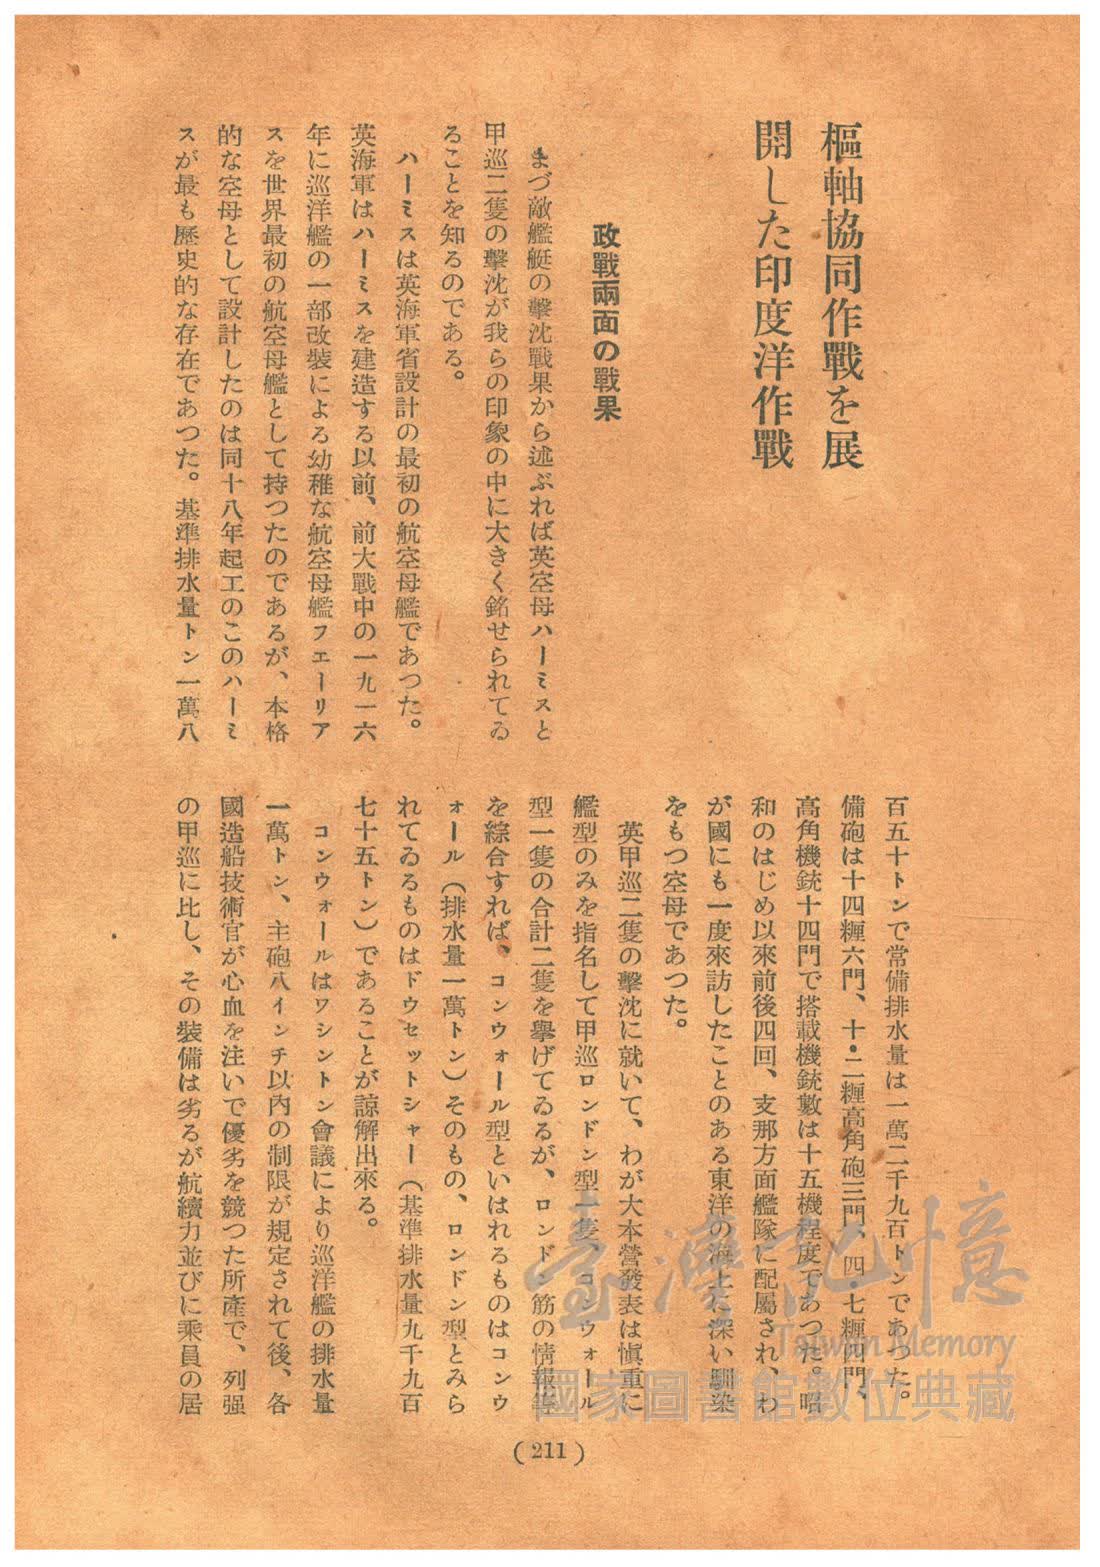 樞軸協同作戰を展
開した印度洋作戰
政戰兩面の戰果
まづ敵艦艇の擊沈戰果から述ぶれば英空母ハーミスと
甲巡二隻の擊沈が我らの印象の中に大きく銘せられてゐ
ることを知るのである。
ハーミスは英海軍省設計の最初の航空母艦であつた。
英海軍はハーミスを建造する以前、前大戰中の一九一六
年に巡洋艦の一部改裝による幼稚な航空母艦フエーリア
スを世界最初の航空母艦として持つたのであるが、本格
的な空母として設計したのは同十八年起工のこのハーミ
スが最も歷史的な存在であつた。基準排水量トン一萬八
百五十トンで常備排水量は一萬二千九百トンであつた。
備砲は十四糎六門、十・二糎高角砲三門、四・七糎四門、
高角機銃十四門で搭載機銃數は十五機程度であつた。昭
和のはじめ以來前後四回、支那方面艦隊に配屬され、わ
が國にも一度來訪したことのある東洋の海上に深い馴染
をもつ空母であつた。
英甲巡二隻の擊沈に就いて、わが大本營發表は愼重に
艦型のみを指名して甲巡ロンドン型一隻、コンウォール
型一隻の合計二隻を擧げてゐるが、ロンドン筋の情報等
を綜合すれば、コンウォール型といはれるものはコンウ
ォール（排水量一萬トン）そのもの、ロンドン型とみら
れてゐるものはドウセットシャー（基準排水量九千九百
七十五トン）であることが諒解出來る。
コンウォールはワシントン會議により巡洋艦の排水量
一萬トン、主砲八インチ以內の制限が規定されて後、各
國造船技術官が心血を注いで優劣を競つた所產で、列强
の甲巡に比し、その裝備は劣るが航續力並びに乘員の居
(211)
臺灣記憶
Taiwan Memory
國家圖書館數位典藏